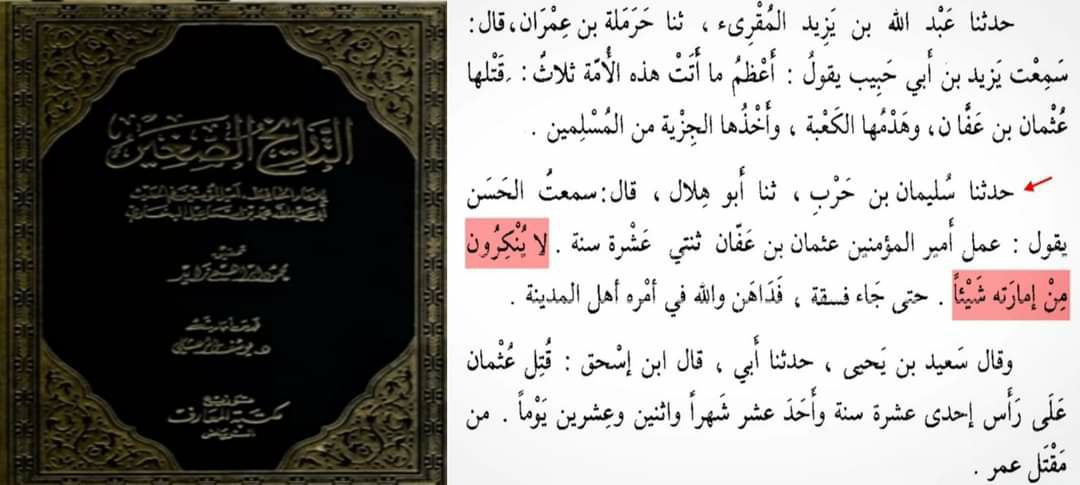 التاريخ الصغير
تحقيق
محمود إبراهيم زايد
مكتبة المعارف
حدثنا عَبْد الله بن يَزِيد المُقْرِىء ، ثنا حَرَمَلة بن عِمْرَان، قال:
سَمِعْت يَزيد بن أَبي حَبِيب يقولُ : أَعْظمُ ما أَتَتْ هذه الأُمّة ثلاثٌ : قَتْلها
عُثْمان بن عَفَّان، وهَدْمُها الكَعْبة ، وأَخْذُها الجِزْية من المُسْلِمين .
حدثنا سُليمان بن حَرْبِ ، ثنا أَبو هِلال ، قال: سمعتُ الحَسَن
يقول : عمل أَمير المؤمنين عثمان بن عَفّان ثنتي عَشْرة سنة . لا يُنْكِرُون
مِنْ إمارَته شَيْئاً . حتى جَاء فسقة ، فَدَاهَن والله في أمْره أهل المدينة .
وقال سَعيد بن يَحيى ، حدثنا أَبي ، قال ابن إسْحق : قُتِل عُثْمان
عَلَى رَأَس إحدى عشرة سنة وأَحَدَ عشر شَهراً واثنين وعِشرين يَوْماً . من
مَقْتَل عمر .